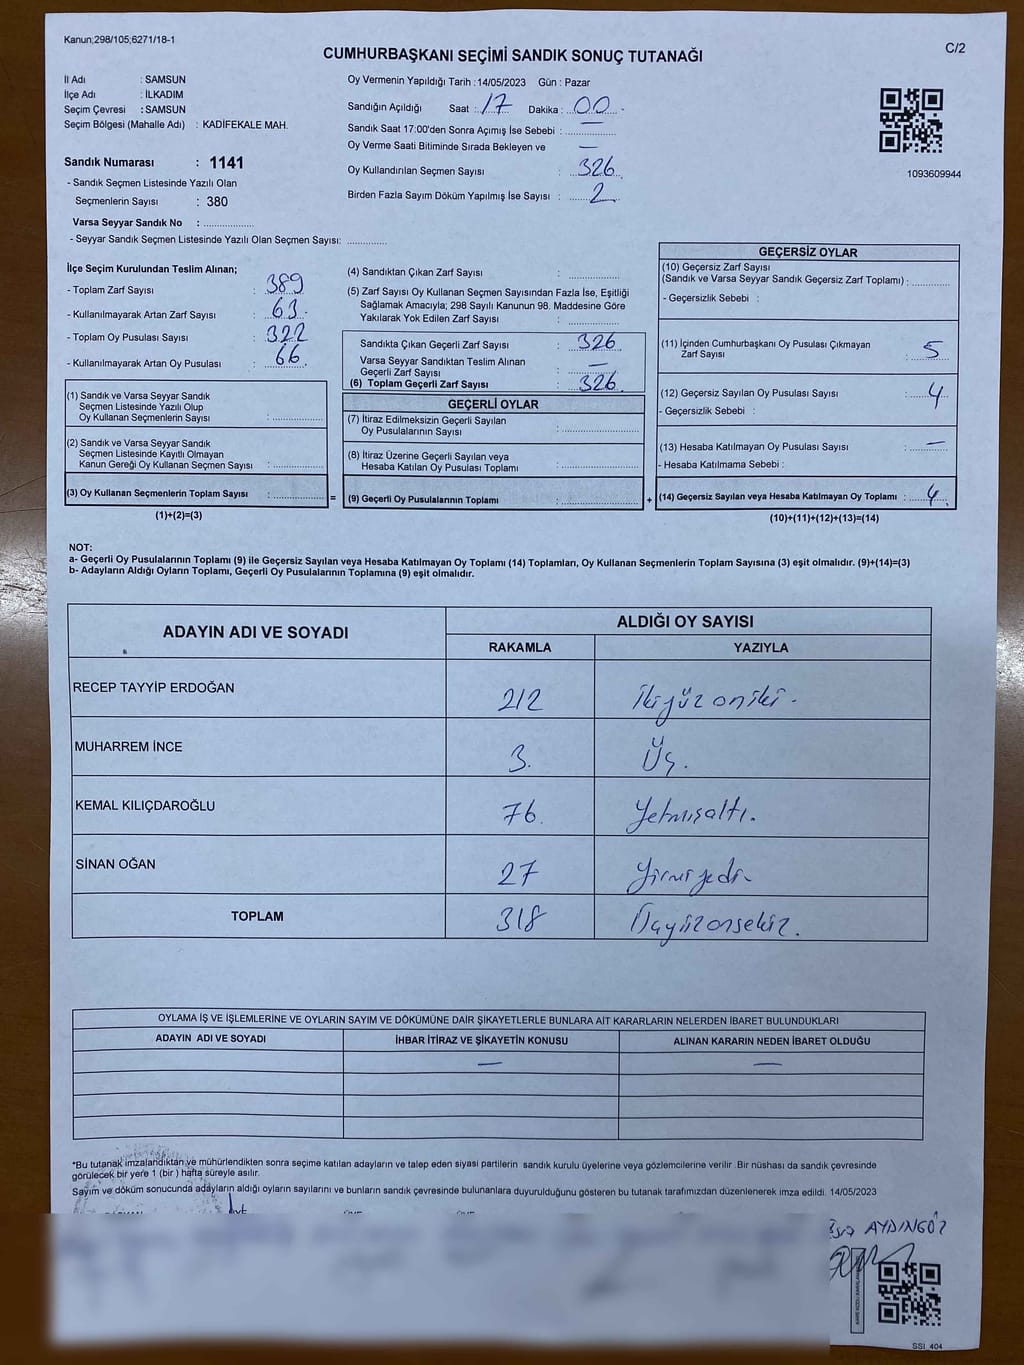 Kanun;298/105;6271/18-1
C/2
CUMHURBAŞKANI SEÇİMİ SANDIK SONUÇ TUTANAĞI
İl Adı : SAMSUN
İlçe Adı : İLKADIM
Seçim Çevresi : SAMSUN
Seçim Bölgesi (Mahalle Adı) : KADİFEKALE MAH.
Sandık Numarası : 1141
- Sandık Seçmen Listesinde Yazılı Olan
Seçmenlerin Sayısı : 380
Varsa Seyyar Sandık No : ..................
- Seyyar Sandık Seçmen Listesinde Yazılı Olan Seçmen Sayısı: ..............
Oy Vermenin Yapıldığı Tarih :14/05/2023 Gün : Pazar
Sandığın Açıldığı Saat : 17 Dakika : 00
Sandık Saat 17:00'den Sonra Açımış İse Sebebi : —
Oy Verme Saati Bitiminde Sırada Bekleyen ve —
Oy Kullandırılan Seçmen Sayısı : 326
Birden Fazla Sayım Döküm Yapılmış İse Sayısı : 2
1093609944
İlçe Seçim Kurulundan Teslim Alınan;
- Toplam Zarf Sayısı : 389
- Kullanılmayarak Artan Zarf Sayısı : 63.
- Toplam Oy Pusulası Sayısı : 322
- Kullanılmayarak Artan Oy Pusulası : 66
(1) Sandık ve Varsa Seyyar Sandık
Seçmen Listesinde Yazılı Olup
Oy Kullanan Seçmenlerin Sayısı : ..................
(2) Sandık ve Varsa Seyyar Sandık
Seçmen Listesinde Kayıtlı Olmayan
Kanun Gereği Oy Kullanan Seçmen Sayısı : ..................
(3) Oy Kullanan Seçmenlerin Toplam Sayısı : .................. =
(1)+(2)=(3)
(4) Sandıktan Çıkan Zarf Sayısı : ..................
(5) Zarf Sayısı Oy Kullanan Seçmen Sayısından Fazla İse, Eşitliği
Sağlamak Amacıyla; 298 Sayılı Kanunun 98. Maddesine Göre
Yakılarak Yok Edilen Zarf Sayısı : ..................
Sandıkta Çıkan Geçerli Zarf Sayısı : 326
Varsa Seyyar Sandıktan Teslim Alınan
Geçerli Zarf Sayısı : —
(6) Toplam Geçerli Zarf Sayısı : 326
GEÇERLİ OYLAR
(7) İtiraz Edilmeksizin Geçerli Sayılan
Oy Pusulalarının Sayısı : ..................
(8) İtiraz Üzerine Geçerli Sayılan veya
Hesaba Katılan Oy Pusulası Toplamı : ..................
(9) Geçerli Oy Pusulalarının Toplamı : .................. +
GEÇERSİZ OYLAR
(10) Geçersiz Zarf Sayısı
(Sandık ve Varsa Seyyar Sandık Geçersiz Zarf Toplamı) : ..............
- Geçersizlik Sebebi :
(11) İçinden Cumhurbaşkanı Oy Pusulası Çıkmayan
Zarf Sayısı : 5
(12) Geçersiz Sayılan Oy Pusulası Sayısı : 4
- Geçersizlik Sebebi :
(13) Hesaba Katılmayan Oy Pusulası Sayısı : —
- Hesaba Katılmama Sebebi :
(14) Geçersiz Sayılan veya Hesaba Katılmayan Oy Toplamı : 4.
(10)+(11)+(12)+(13)=(14)
NOT:
a- Geçerli Oy Pusulalarının Toplamı (9) ile Geçersiz Sayılan veya Hesaba Katılmayan Oy Toplamı (14) Toplamları, Oy Kullanan Seçmenlerin Toplam Sayısına (3) eşit olmalıdır. (9)+(14)=(3)
b- Adayların Aldığı Oyların Toplamı, Geçerli Oy Pusulalarının Toplamına (9) eşit olmalıdır.
ADAYIN ADI VE SOYADI
ALDIĞI OY SAYISI
RAKAMLA YAZIYLA
RECEP TAYYİP ERDOĞAN 212 İkiyüz oniki.
MUHARREM İNCE 3. Üç.
KEMAL KILIÇDAROĞLU 76. Yetmişaltı.
SİNAN OĞAN 27 Yirmiyedi
TOPLAM 318 Üçyüzonsekiz.
OYLAMA İŞ VE İŞLEMLERİNE VE OYLARIN SAYIM VE DÖKÜMÜNE DAİR ŞİKAYETLERLE BUNLARA AİT KARARLARIN NELERDEN İBARET BULUNDUKLARI
ADAYIN ADI VE SOYADI İHBAR İTİRAZ VE ŞİKAYETİN KONUSU ALINAN KARARIN NEDEN İBARET OLDUĞU
— —
*Bu tutanak imzalandıktan ve mühürlendikten sonra seçime katılan adayların ve talep eden siyasi partilerin sandık kurulu üyelerine veya gözlemcilerine verilir .Bir nüshası da sandık çevresinde
görülecek bir yere 1 (bir ) hafta süreyle asılır.
Sayım ve döküm sonucunda adayların aldığı oyların sayılarını ve bunların sandık çevresinde bulunanlara duyurulduğunu gösteren bu tutanak tarafımızdan düzenlenerek imza edildi. 14/05/2023
AYDINGÖZ
SSI_404